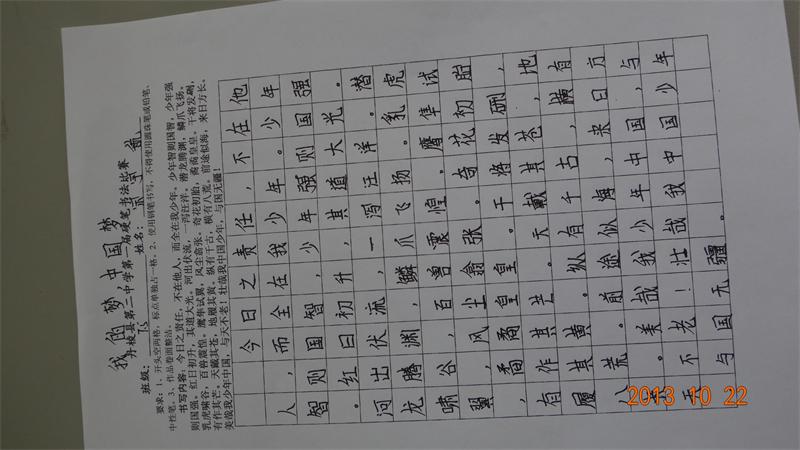 我的梦，中国梦
丹棱县第二中学第一届硬笔书法比赛
班级： 姓名：
要求：1、开头空两格，标点单独占一格。2、使用钢笔书写，不得使用圆珠笔或铅笔、
中性笔。3、作品卷面整洁。
书写内容：今日之责任，不在他人，而全在我少年。少年智则国智，少年强
则国强。红日初升，其道大光。河出伏流，一泻汪洋。潜龙腾渊，鳞爪飞扬。
乳虎啸谷，百兽震惶。鹰隼试翼，风尘翕张。奇花初胎，矞矞皇皇。干将发硎，
有作其芒。天戴其苍，地履其黄。纵有千古，横有八荒。前途似海，来日方长。
美哉我少年中国，与天不老！壮哉我中国少年，与国无疆！
今日之责任，不在他
人，而全在我少年。少年
智则国智，少年强则国强
。红日初升，其道大光。
河出伏流，一泻汪洋。潜
龙腾渊，鳞爪飞扬。乳虎
啸谷，百兽震惶。鹰隼试
翼，风尘翕张。奇花初胎
，矞矞皇皇。干将发硎，
有作其芒。天戴其苍，地
履其黄。纵有千古，横有
八荒。前途似海，来日方
长。美哉我少年中国，与
天不老！壮哉我中国少年
，与国无疆。
2013 10 22